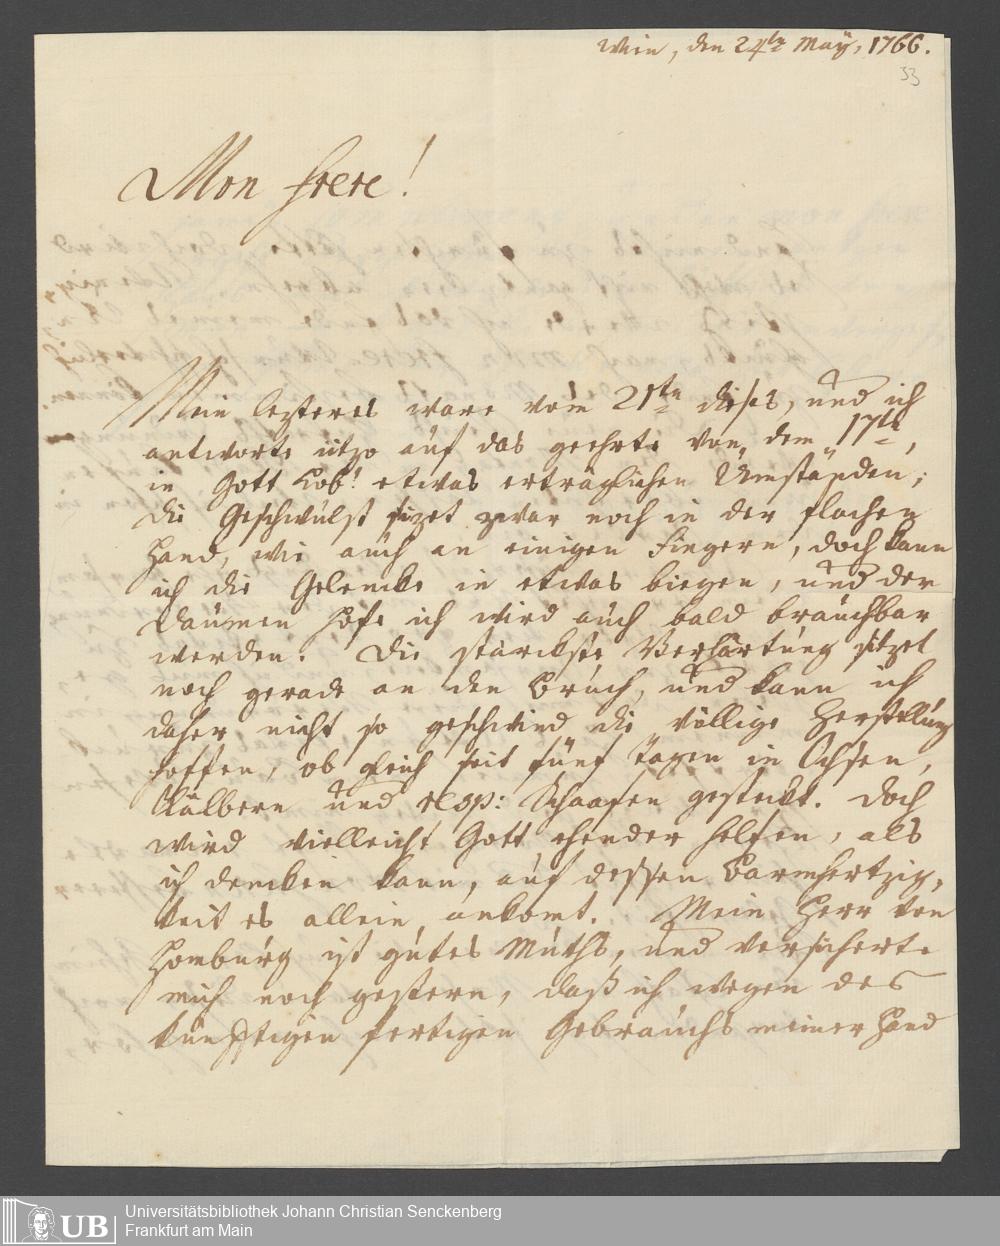 Wien, den 24ten May, 1766.
33
Mon frere!
Mein lezteres ware vom 21ten dieses, und ich
antworte itzo auf das geehrte von dem 17ten,
in Gott Lob! etwas erträglichen Umständen;
die Geschwulst sizet zwar noch in der flachen
Hand, wie auch an einigen Fingern, doch kann
ich die Gelencke in etwas biegen, und der
Daumen hofe ich wird auch bald brauchbar
werden. Die starckste Verhärtung sitzet
noch gerade an den Bruch, und kann ich
daher nicht so geschwind die völlige Herstellung
hoffen, ob gleich seit fünf Tagen in Ochsen,
Kälbern und resp: Schaafen gesteckt. Doch
wird vielleicht Gott ehender helfen, als
ich dencken kann, auf dessen Barmhertzig,
keit es allein ankomt. Mein Herr von
Homburg ist gutes Muths, und versicherte
mich noch gestern, daß ich wegen des
künfftigen fertigen Gebrauchs meiner Hand
UB
Universitätsbibliothek Johann Christian Senckenberg
Frankfurt am Main